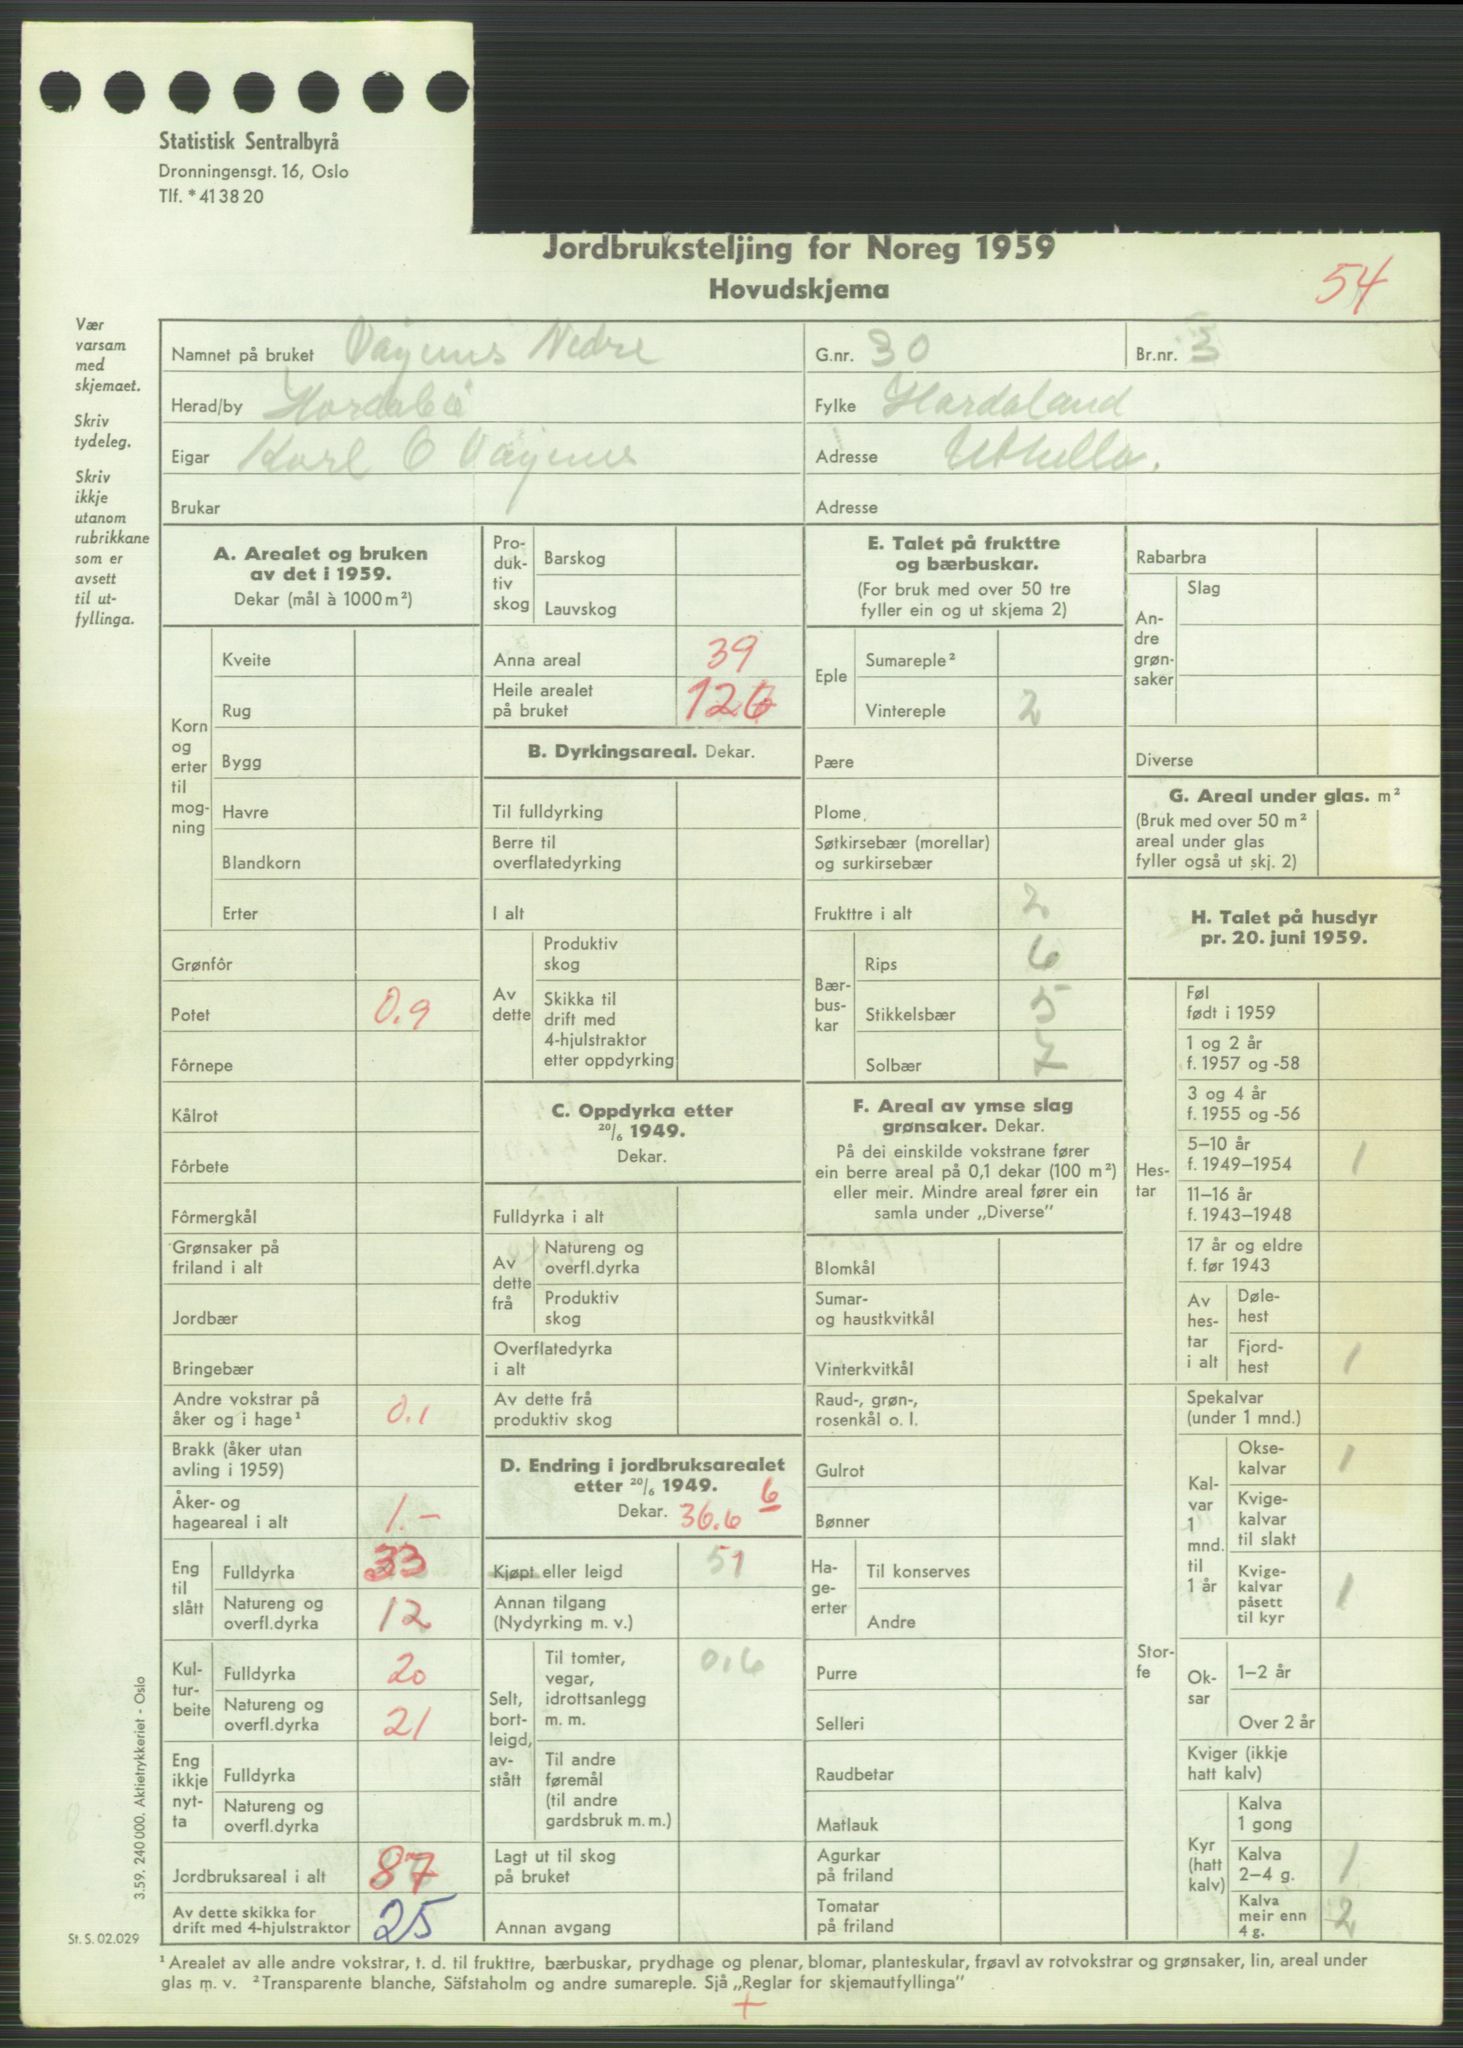 Statistisk Sentralbyrå
Dronningensgt. 16, Oslo
Tlf. * 41 38 20
Jordbruksteljing for Noreg 1959
Hovudskjema
54
Vær
varsam
med
skjemaet.
Skriv
tydeleg.
Skriv
ikkje
utanom
rubrikkane
som er
avsett
til ut-
fyllinga.
Namnet på bruket Vågenes Nedre G.nr. 30 Br.nr. 3
Herad/by Hordabø Fylke Hordaland
Eigar Karl O Vågenes Adresse Uthella.
Brukar Adresse
A. Arealet og bruken
av det i 1959.
Dekar (mål à 1000 m²)
Korn
og
erter
til
mog-
ning
Kveite
Rug
Bygg
Havre
Blandkorn
Erter
Grønfôr
Potet 0.9
Fôrnepe
Kålrot
Fôrbete
Fôrmergkål
Grønsaker på
friland i alt
Jordbær
Bringebær
Andre vokstrar på
åker og i hage¹ 0.1
Brakk (åker utan
avling i 1959)
Åker- og
hageareal i alt 1.-
Eng
til
slått
Fulldyrka 33
Natureng og
overfl.dyrka 12
Kul-
tur-
beite
Fulldyrka 20
Natureng og
overfl.dyrka 21
Eng
ikkje
nyt-
ta
Fulldyrka
Natureng og
overfl.dyrka
Jordbruksareal i alt 87
Av dette skikka for
drift med 4-hjulstraktor 25
Pro-
duk-
tiv
skog
Barskog
Lauvskog
Anna areal 39
Heile arealet
på bruket 126
B. Dyrkingsareal. Dekar.
Til fulldyrking
Berre til
overflatedyrking
I alt
Av
dette
Produktiv
skog
Skikka til
drift med
4-hjulstraktor
etter oppdyrking
C. Oppdyrka etter
20/6 1949.
Dekar.
Fulldyrka i alt
Av
dette
frå
Natureng og
overfl.dyrka
Produktiv
skog
Overflatedyrka
i alt
Av dette frå
produktiv skog
D. Endring i jordbruksarealet
etter 20/6 1949.
Dekar. 36.6 6
Kjøpt eller leigd 51
Annan tilgang
(Nydyrking m. v.)
Selt,
bort-
leigd,
av-
stått
Til tomter,
vegar,
idrottsanlegg
m. m. 0,6
Til andre
føremål
(til andre
gardsbruk m. m.)
Lagt ut til skog
på bruket
Annan avgang
E. Talet på frukttre
og bærbuskar.
(For bruk med over 50 tre
fyller ein og ut skjema 2)
Eple
Sumareple²
Vintereple 2
Pære
Plome
Søtkirsebær (morellar)
og surkirsebær
Frukttre i alt 2
Bær-
bus-
kar
Rips 6
Stikkelsbær 5
Solbær 7
F. Areal av ymse slag
grønsaker. Dekar.
På dei einskilde vokstrane fører
ein berre areal på 0,1 dekar (100 m²)
eller meir. Mindre areal fører ein
samla under „Diverse”
Blomkål
Sumar-
og haustkvitkål
Vinterkvitkål
Raud-, grøn-,
rosenkål o. l.
Gulrot
Bønner
Ha-
ge-
erter
Til konserves
Andre
Purre
Selleri
Raudbetar
Matlauk
Agurkar
på friland
Tomatar
på friland
Rabarbra
An-
dre
grøn-
saker
Slag
Diverse
G. Areal under glas. m²
(Bruk med over 50 m²
areal under glas
fyller også ut skj. 2)
H. Talet på husdyr
pr. 20. juni 1959.
Hes-
tar
Føl
født i 1959
1 og 2 år
f. 1957 og -58
3 og 4 år
f. 1955 og -56
5–10 år
f. 1949–1954 1
11–16 år
f. 1943–1948
17 år og eldre
f. før 1943
Av
hes-
tar
i alt
Døle-
hest
Fjord-
hest 1
Stor-
fe
Spekalvar
(under 1 mnd.)
Kal-
var
1
mnd.
til
1 år
Okse-
kalvar 1
Kvige-
kalvar
til slakt
Kvige-
kalvar
påsett
til kyr 1
Ok-
sar
1–2 år
Over 2 år
Kviger (ikkje
hatt kalv)
Kyr
(hatt
kalv)
Kalva
1 gong
Kalva
2–4 g. 1
Kalva
meir enn
4 g. 2
3.59. 240 000. Aktietrykkeriet - Oslo
St. S. 02.029
¹ Arealet av alle andre vokstrar, t. d. til frukttre, bærbuskar, prydhage og plenar, blomar, planteskular, frøavl av rotvokstrar og grønsaker, lin, areal under
glas m. v. ² Transparente blanche, Säfstaholm og andre sumareple. Sjå „Reglar for skjemautfyllinga”
+